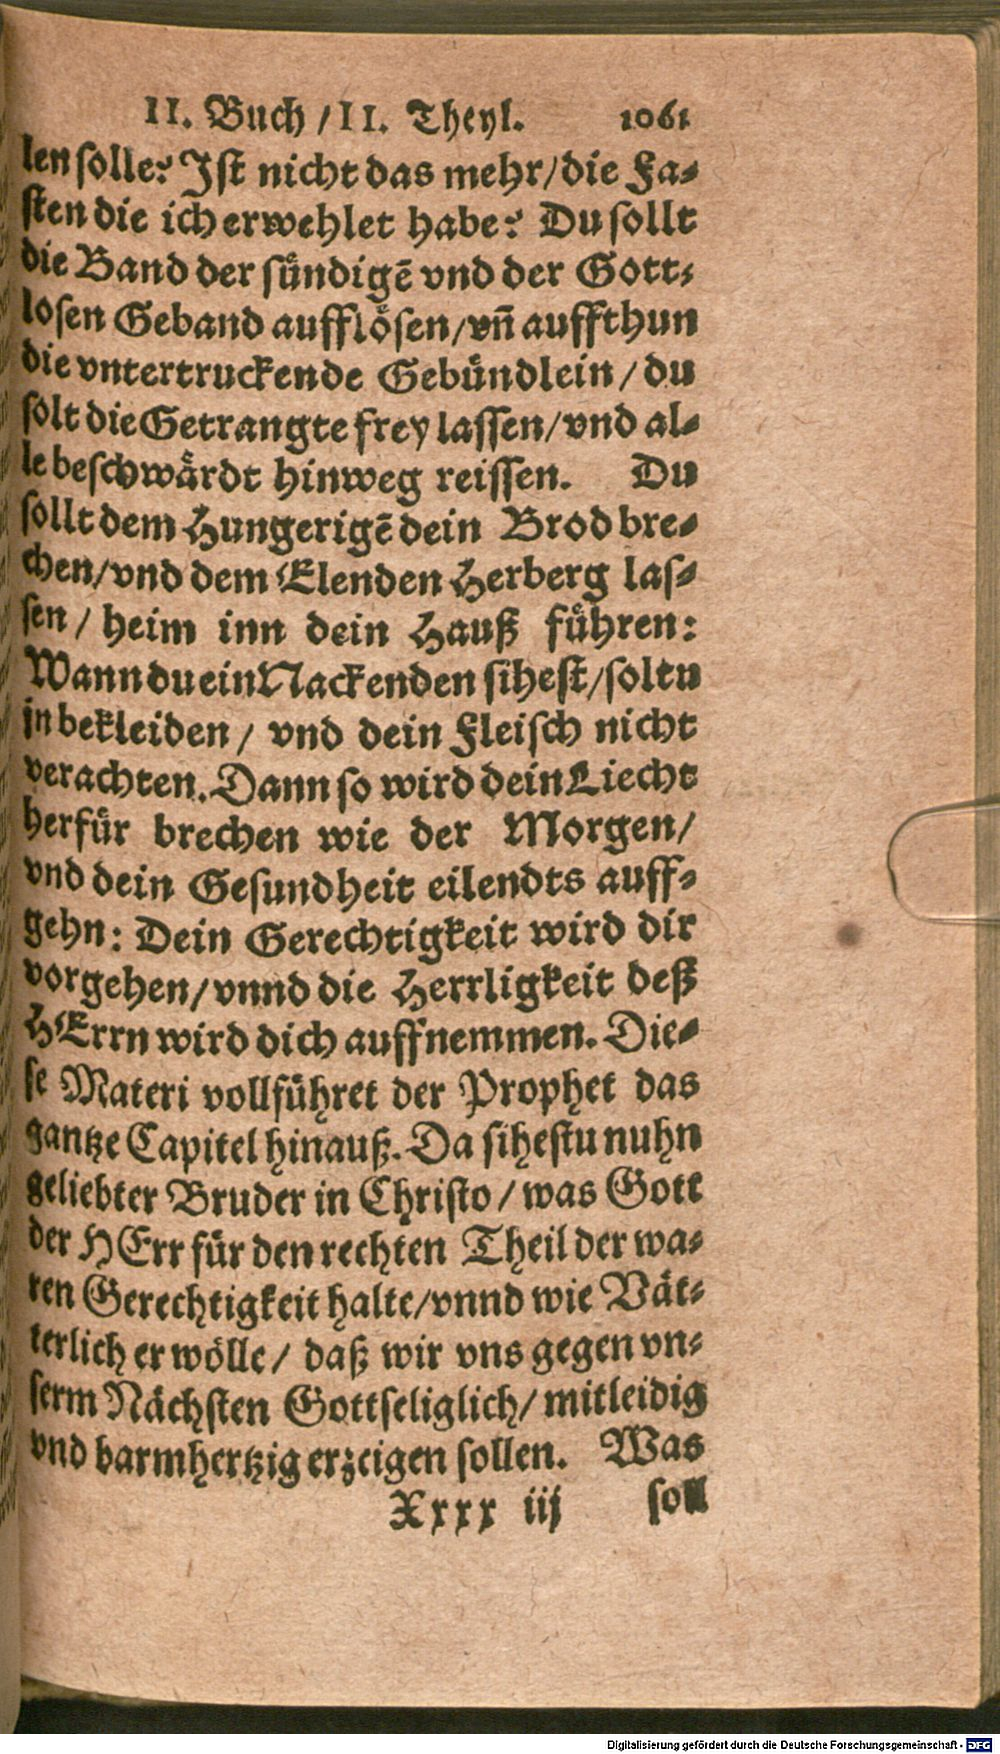 II. Buch / II. Theyl. 1061
len solle? Ist nicht das mehr / die Fa-
sten die ich erwehlet habe? Du sollt
die Band der sündigē vnd der Gott-
losen Geband aufflösen / vn̄ auffthun
die vntertruckende Gebündlein / du
solt die Getrangte frey lassen / vnd al-
le beschwärdt hinweg reissen. Du
sollt dem Hungerigē dein Brod bre-
chen / vnd dem Elenden Herberg las-
sen / heim inn dein Hauß führen:
Wann du ein Nackenden sihest / soltu
jn bekleiden / vnd dein Fleisch nicht
verachten. Dann so wird dein Liecht
herfür brechen wie der Morgen /
vnd dein Gesundheit eilendts auff-
gehn: Dein Gerechtigkeit wird dir
vorgehen / vnnd die Herrligkeit deß
HErrn wird dich auffnemmen. Die-
se Materi vollführet der Prophet das
gantze Capitel hinauß. Da sihestu nuhn
geliebter Bruder in Christo / was Gott
der HErr für den rechten Theil der wa-
ren Gerechtigkeit halte / vnnd wie Vät-
terlich er wölle / daß wir vns gegen vn-
serm Nächsten Gottseliglich / mitleidig
vnd barmhertzig erzeigen sollen. Was
Xxxx iij soll
Digitalisierung gefördert durch die Deutsche Forschungsgemeinschaft - DFG